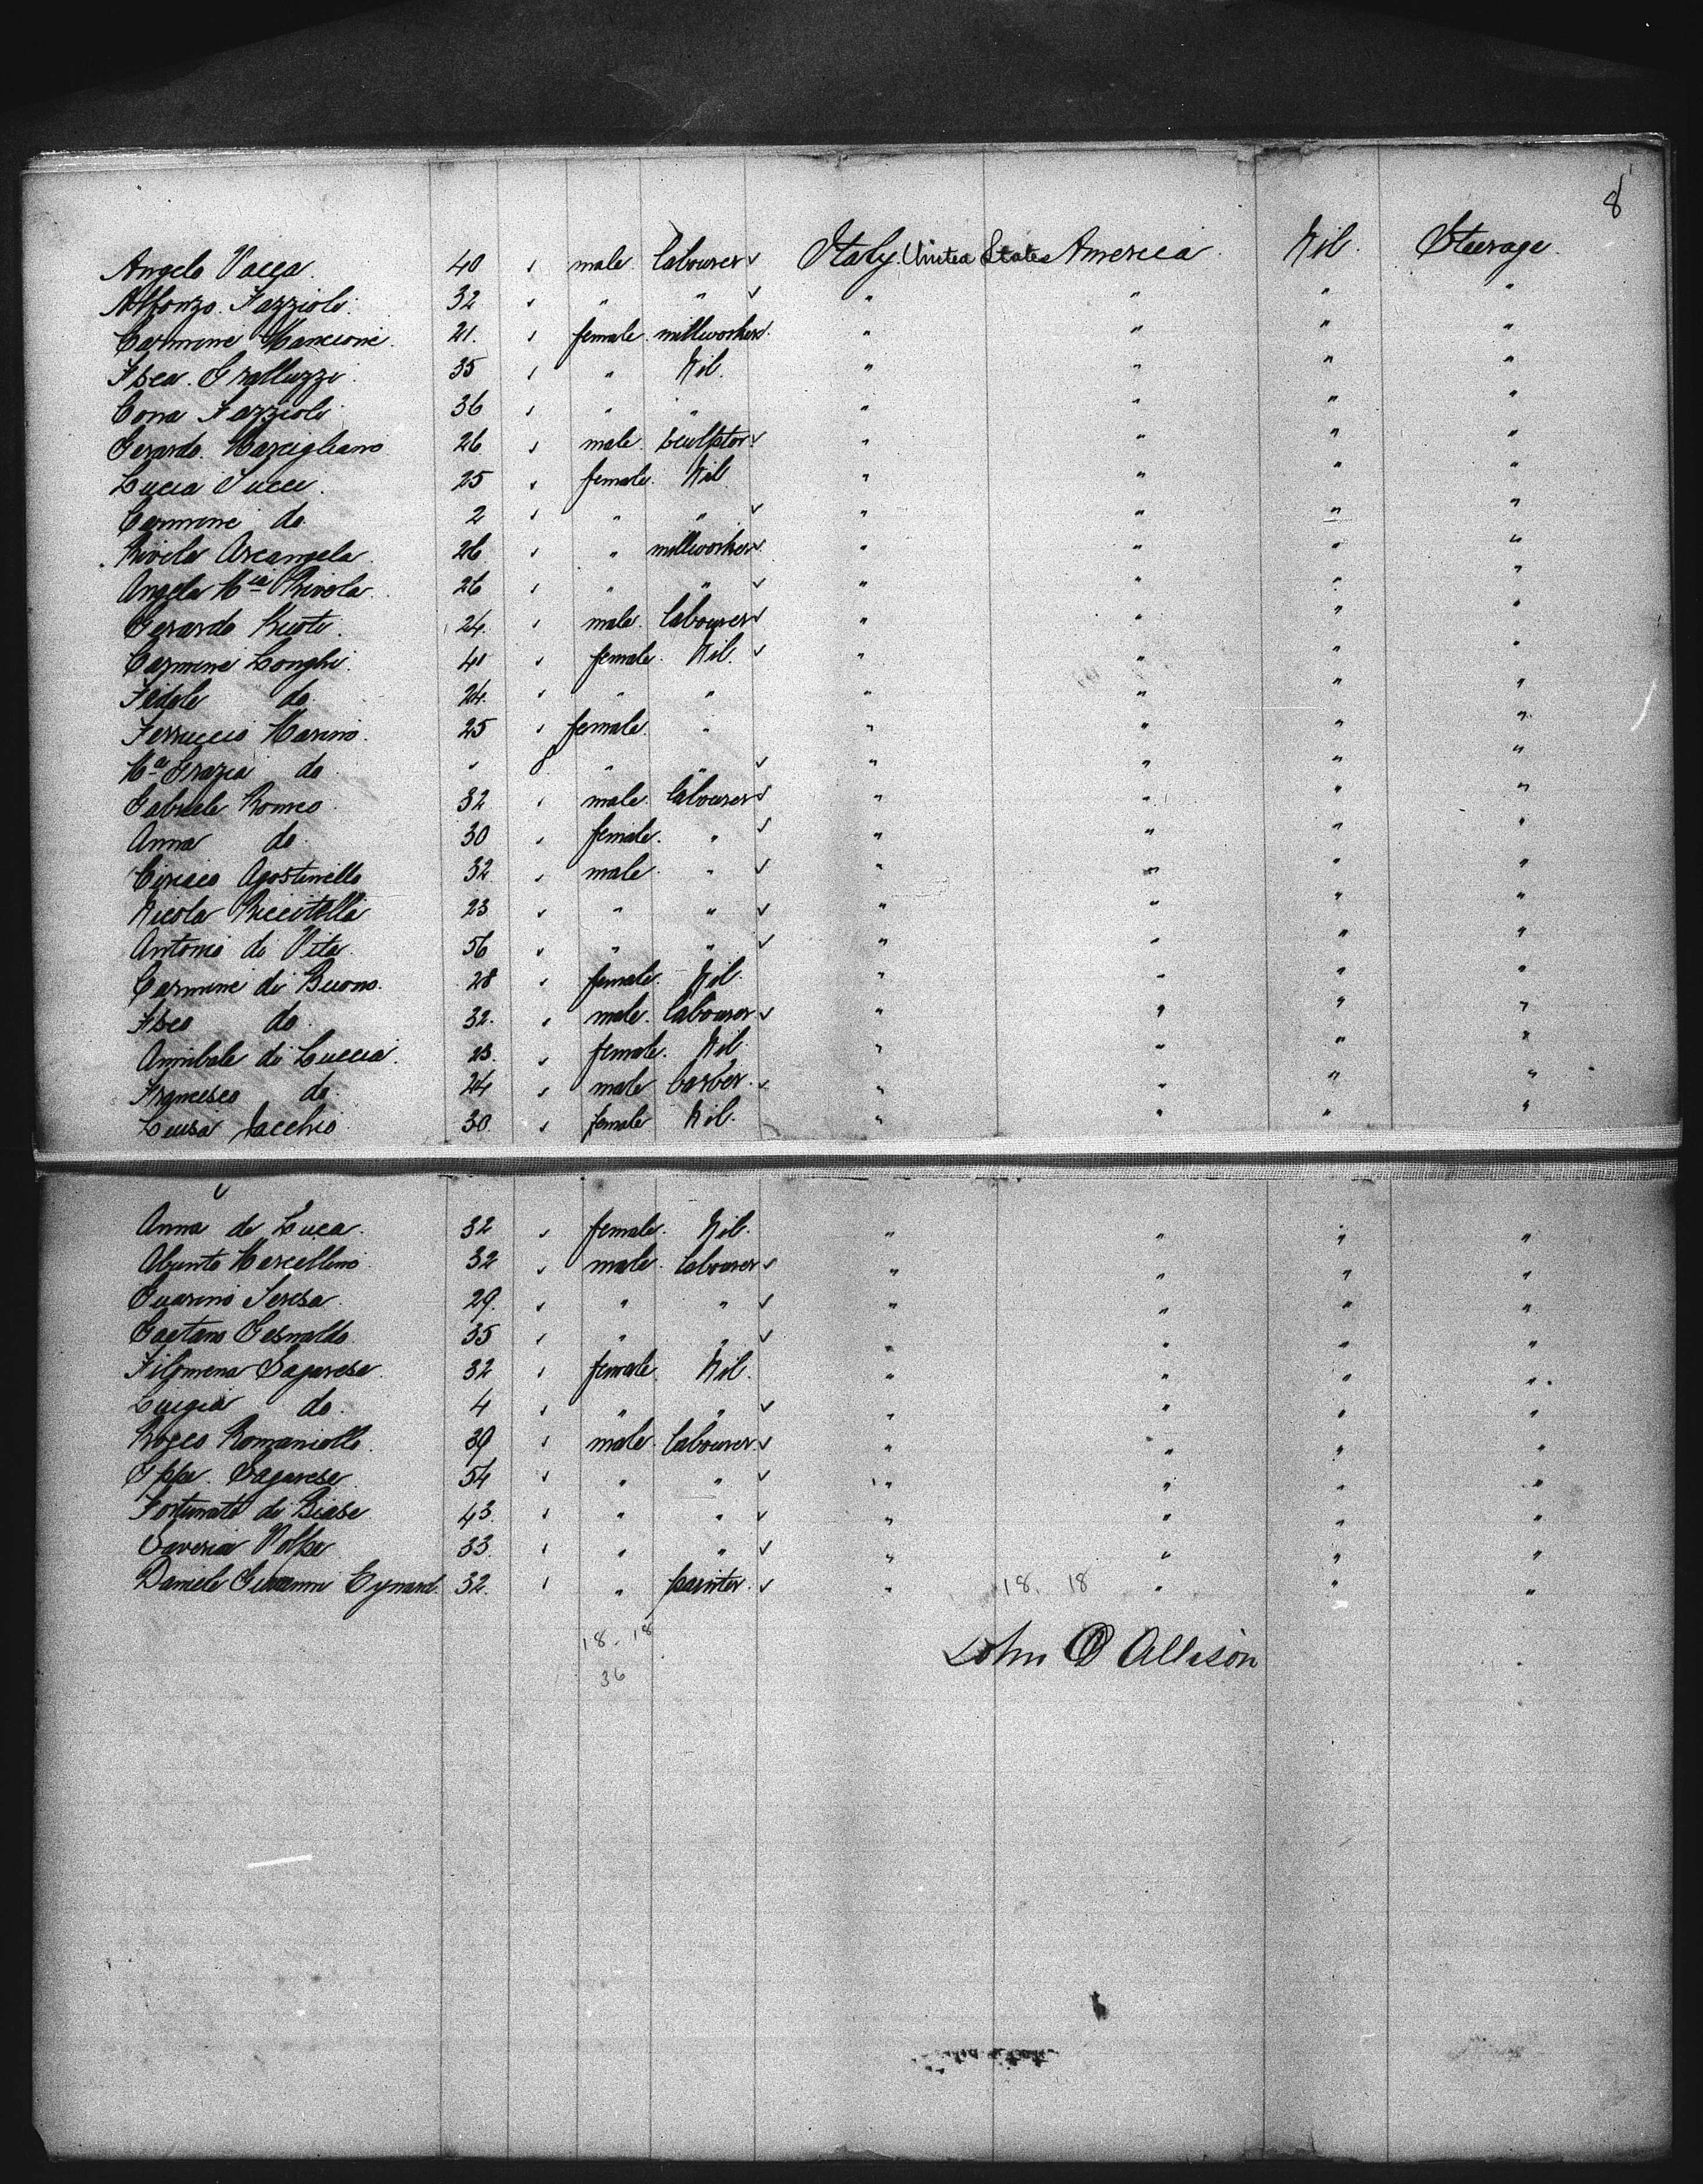 8
Angelo Vacca. 40 " male. labourer Italy. United States America. Nil. Steerage.
Alfonzo. Fazzioli. 32 " " " " " " "
Carmine Mancione. 21. " female. millworker. " " " "
Fsca. Gralluzzi. 35 " " Nil. " " " "
Cona Fazzioli 36 " " " " " " "
Gerardo. Marcigliano 26 " male. sculptor " " " "
Lucia Tucci. 25 " female. Nil " " " "
Carmine do. 2 " " " " " " "
Rivela Arcangela. 26 " " millworker " " " "
Angela Mia Rivela. 26 " " " " " " "
Gerardo Ruoti. 24. " male. labourer " " " "
Carmine Longhi. 41 " female. Nil. " " " "
Fidele do. 24. " " " " " " "
Ferruccio Marino. 25 " female. " " " " "
Ma Grazia do " 8 " " " " " "
Gabriele Romeo. 32 " male. labourer " " " "
Anna do. 30 " female. " " " " "
Ciriaco Agostinello 32 " male. " " " " "
Nicola Riccitelli 23 " " " " " " "
Antonio di Vito. 56 " " " " " " "
Carmine di Buono. 28 " female. Nil. " " " "
Fsco do. 32. " male. labourer " " " "
Annibale di Luccia. 23. " female. Nil. " " " "
Francesco do. 24 " male barber. " " " "
Luisa Iacchio 30 " female Nil. " " " "
Anna de Luca. 32 " female. Nil. " " " "
Marcellino. 32 " male. labourer " " " "
Guarino Teresa. 29. " " " " " " "
Gaetano Gesualdo. 35 " " " " " "
Filomena Sagarese. 32 " female. Nil. " " " "
Luigia do. 4 " " " " " " "
Rocco Romaniello. 39 " male. labourer " " " "
Gppe. Sagarese. 54 " " " " " " "
Fortunato di Biase 43. " " " " " " "
Saveria Volpe 33. " " " " " " "
Daniele Giovanni Eynard. 32. " " painter. " 18. 18 " " "
18. 18 John D Allison
36